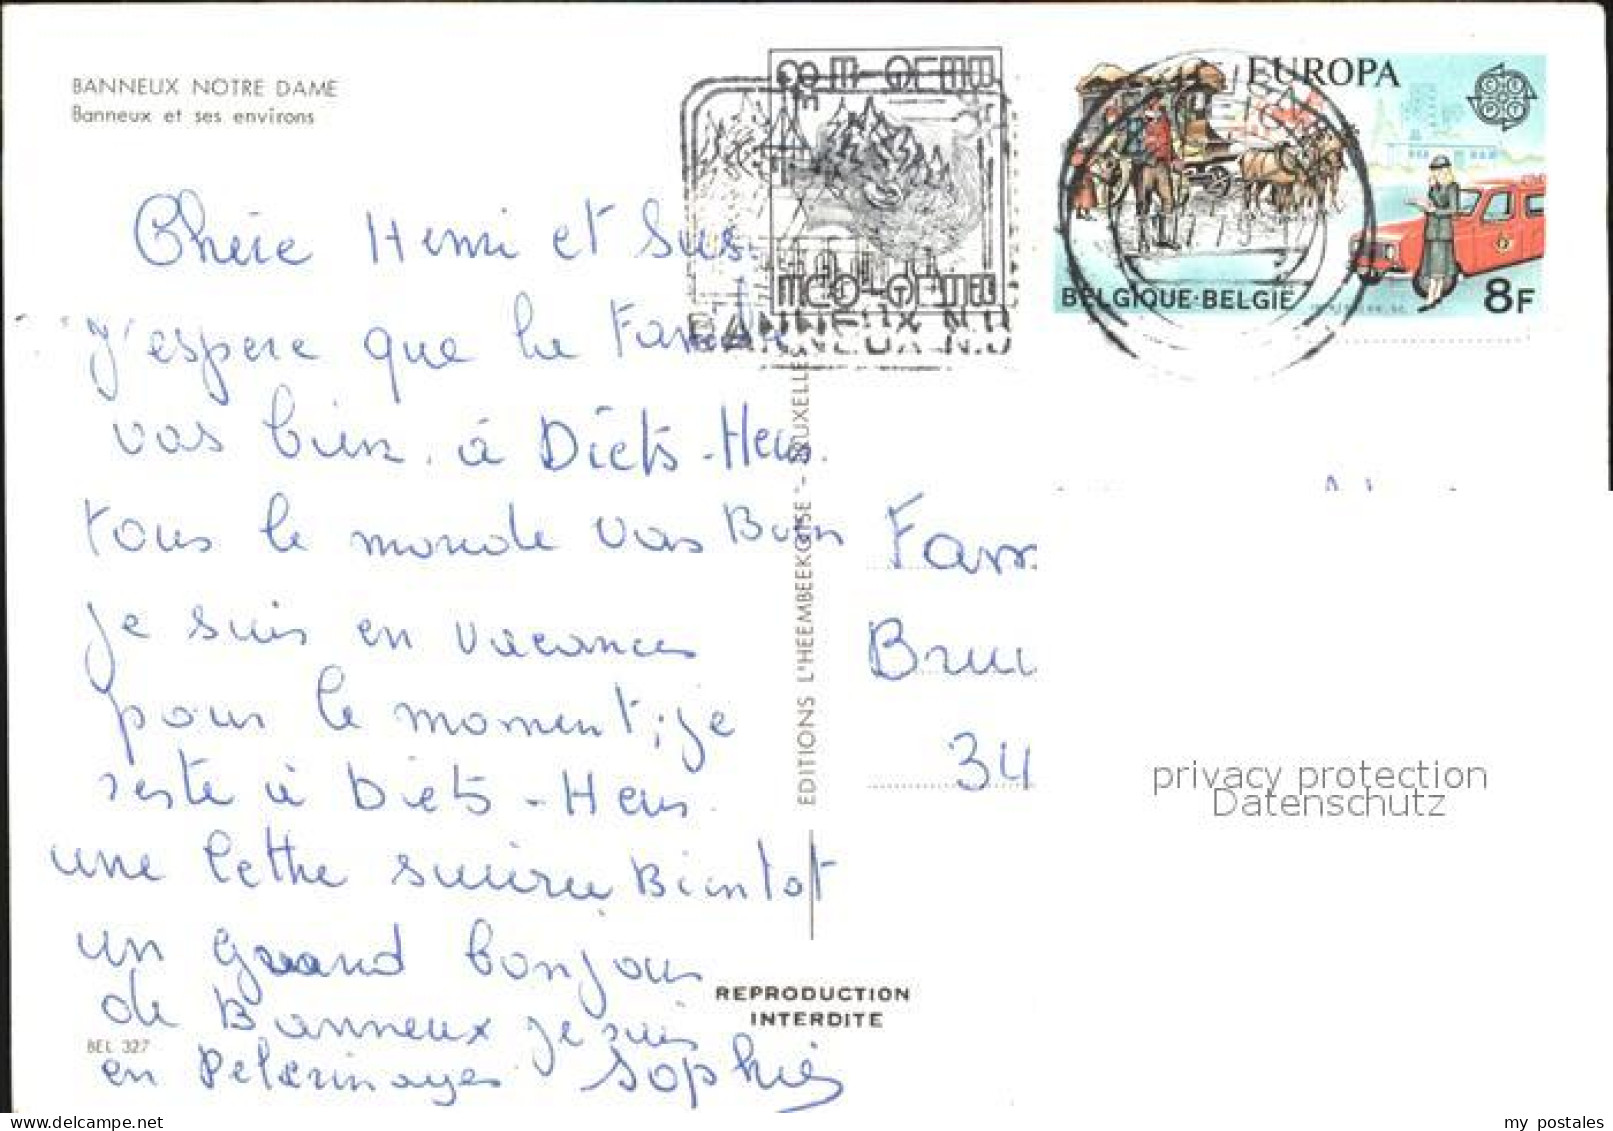 BANNEUX NOTRE DAME
Banneux et ses environs
EUROPA
BELGIQUE-BELGIË 8F
BANNEUX N.D
Chère Henri et Sus.
j'espere que la Famille
vas bien. à Diets-Heur.
tous le monde vas Bien
je suis en vacances
pour le moment; je
reste à Diets-Heur.
une lettre suivra Bientot
un grand bonjour
de Banneux je suis
en Pelerinages Sophie
BEL 327
EDITIONS L'HEEMBEEKGOISE - BRUXELLES
REPRODUCTION
INTERDITE
Fam
Bru
34
privacy protection
Datenschutz
delcampe.net
my_postales